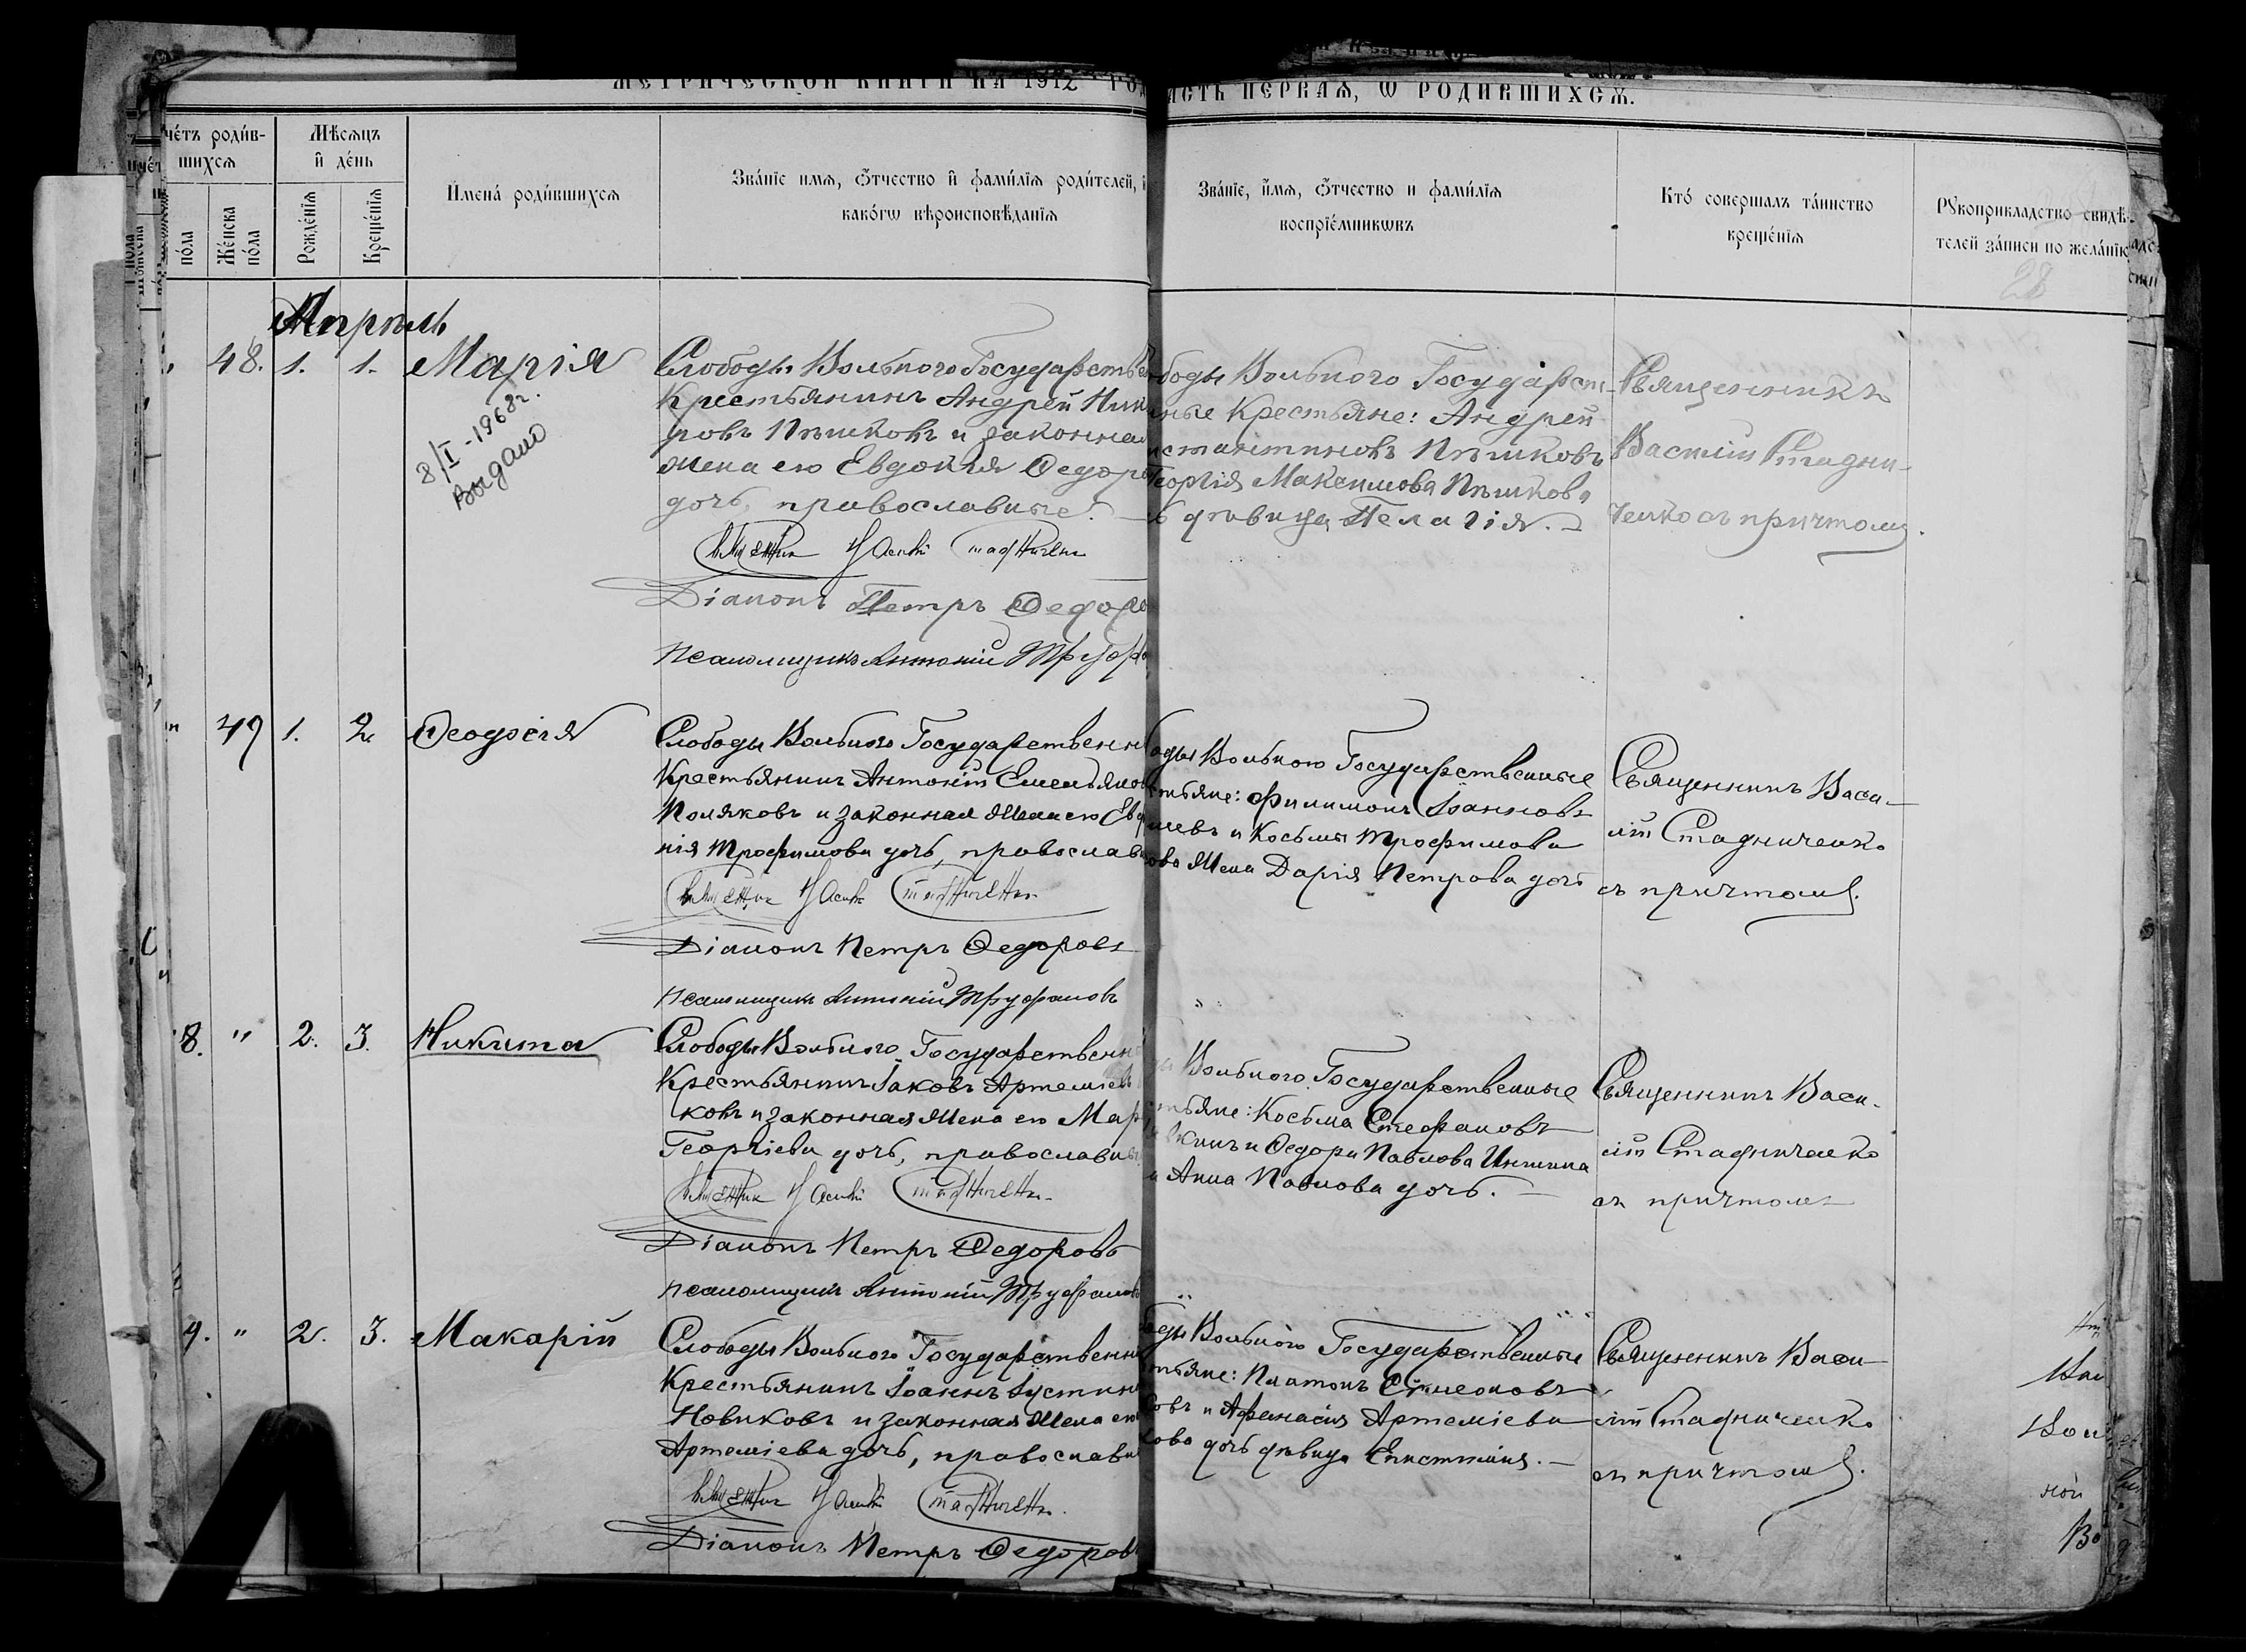 МЕТРИЧЕСКОЙ КНИГИ НА 1912 ГОД
АСТЬ ПЕРВАЯ, Ѡ РОДИВШИХСЯ.
че́тъ роди́в-
шихся
по́ла
Же́нска по́ла
Мѣсяцъ и де́нь
Рожде́нїя
Креще́нїя
Имена́ роди́вшихся
Зва́нїе имя, ѻтчество и фами́лїя роди́телей, и
како́гѡ вѣроисповѣ́данїя
Зва́нїе, и́мя, ѻтчество и фами́лїя
воспрїе́мникѡвъ
Кто́ соверша́лъ та́инство
креще́нїя
Рꙋкоприкладство свидѣ-
телей за́писи по жела́нїю
28
Апрѣль
48. 1. 1. Марія
8/I-1968г.
Выдано
Слободы Вольного Государстве
Крестьянинъ Андрей Ник
ровъ Пѣшковъ и законная
жена его Евдокія Ѳедоро
дочь, православные.
Священник Василій Стадниченко
Діаконъ Петръ Ѳедоро
Псаломщикъ Антоній Труфа
боды Вольного Государст-
ные Крестьяне: Андрей
стантиновъ Пѣшковъ
Георгія Максимова Пѣшкова
ь дѣвица Пелагія.
Священникъ
Василій Стадни-
ченко съ причтомъ.
49 1. 2 Ѳеодосія
Слободы Вольного Государственн
Крестьянинъ Антоній Емельянов
Поляковъ и законная жена его Евд
кія Трофимова дочь, православ
Священник Василій Стадниченко
Діаконъ Петръ Ѳедоровъ
Псаломщикъ Антоній Труфановъ
оды Вольного Государственные
стьяне: Филимонъ Іоанновъ
шевъ и Косьмы Трофимова
ова жена Дарія Петрова дочь
Священникъ Васи-
лій Стадниченко
съ причтомъ.
8. " 2. 3. Никита
Слободы Вольного Государственн
Крестьянинъ Іаковъ Артеміевъ
ковъ и законная жена его Мар
Георгіева дочь, православны
Священник Василій Стадниченко
Діаконъ Петръ Ѳедоровъ
Псаломщикъ Антоній Труфановъ
Вольного Государственные
стьяне: Косьма Стефановъ
кинъ и Ѳедора Павлова
Анна Павлова дочь.
Священникъ Васи-
лій Стадниченко
съ причтомъ
9. " 2. 3. Макарій
Слободы Вольного Государственны
Крестьянинъ Іоаннъ Іустин
Новиковъ и законная жена его
Артеміева дочь, православн
Священник Василій Стадниченко
Діаконъ Петръ Ѳедоровъ
оды Вольного Государственные
стьяне: Платонъ Симеоновъ
ковъ и Афанасія Артеміева
кова дочь дѣвица Епистимія.
Священникъ Васи-
лій Стадниченко
съ причтомъ.